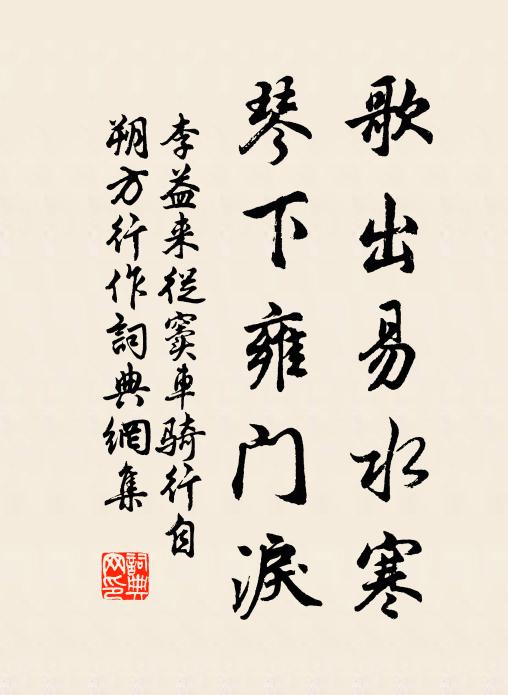 歌出易水寒
琴下雍门淚
李益来從窦車騎行自
朔方行作詞典網集
詞典网印